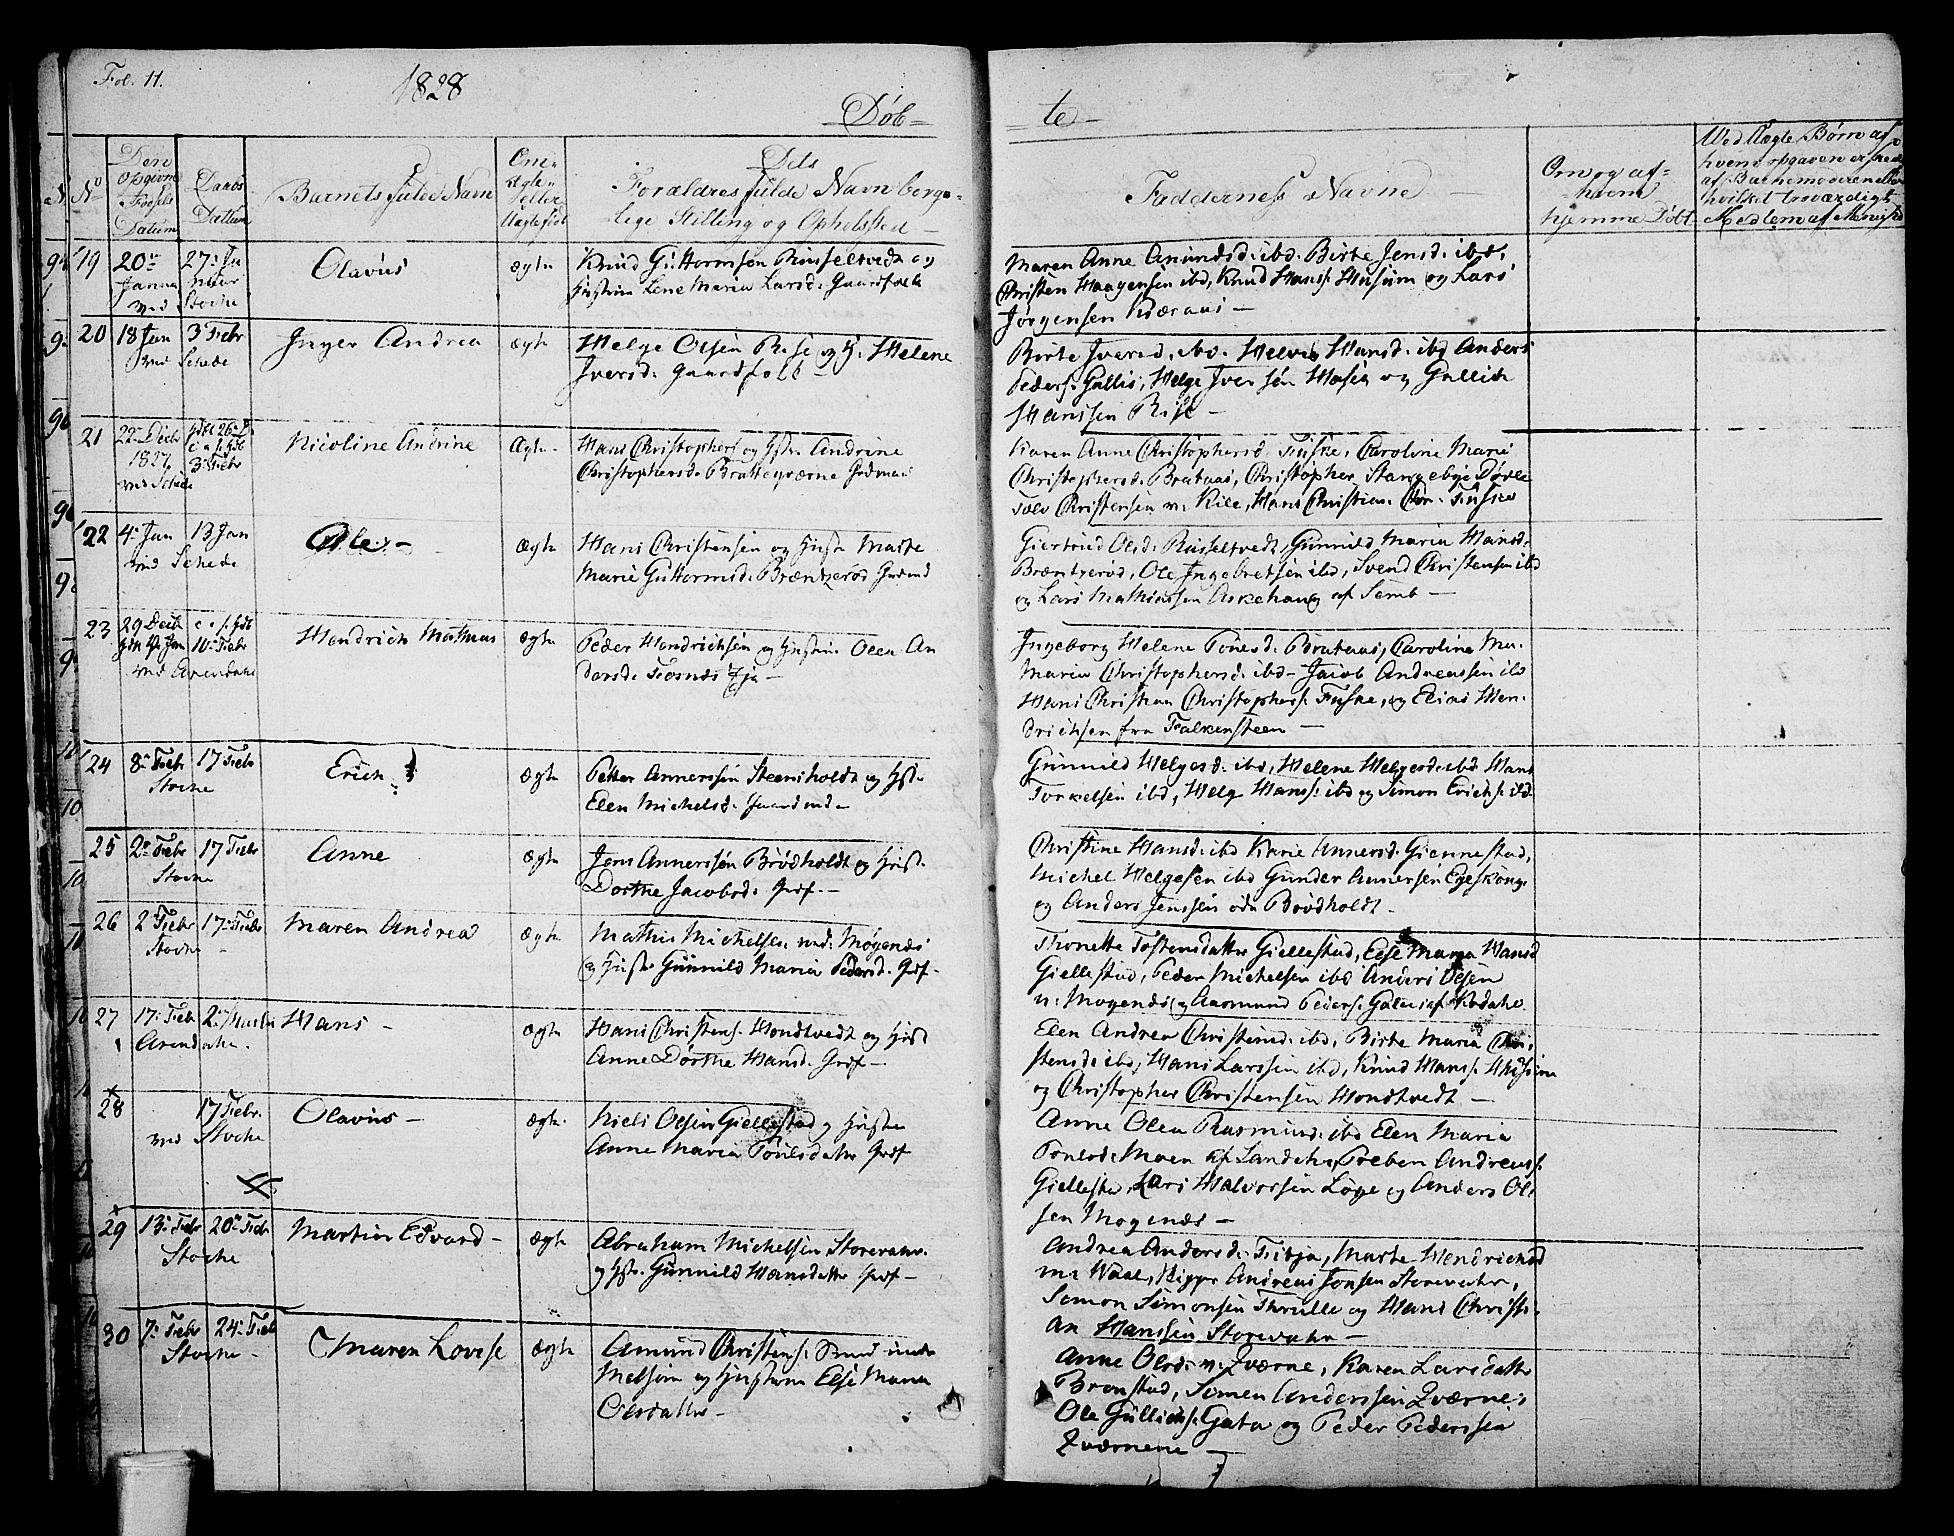 Fol. 11.
1828
Døb-
te-
No
Den opgivne Fødsels Datum
Daabs Datum
Barnets fulde Navn
Om ægte eller uægte født
Dets
Forældres fulde Navn borger-
lige Stilling og Opholssted
Faddernes Navne
Om og af
hvem
hjemme Døbt
Ved Uægte Børn af
hvem opgaven er skeed
af Barnemoderen eller
hvilket troværdigt
Medlem af Menigh
19
20de Janua
27de Januar
ved Stocke
Olavus
ægte
Knud Guttormsen Russeltvedt og
Hustru Lene Maria Larsd. Gaardfolk
Maren Anne Amundsd. ibd. Birte Jensd. ibd,
Christen Haagensen ibd, Knud Hanss. Husum og Lars
Jørgensen Kiæraas -
20
18 Jan
3 Febr
ved Schede
Inger Andrea
ægte
Helge Olsen Rise og H. Helene
Iversd. Gaardfolk
Birte Iversd. ibd. Helvig Hansd. ibd Anders
Peders. Gallis, Helge Iversen Hasia og Gullich
Hanssen Rise -
21
22 Decbr
1827
3 Febr
ved Schede
Nicoline Andrine
Ægte
Hans Christophers og Hstr. Andrine
Christophersd. Bratteqværne
Karen Anne Christophersd. Fuske, Caroline Marie
Christophersd. Brataas, Christopher Stangebye Dørle
Christensen v. Kile, Hans Christian Chr. Fuske
22
4 Jan
13 Jan
ved Schede
Ole -
Ægte
Hans Christensen og Hustr Marte
Marie Guttormsd. Bræntzerød Grdmd
Giertrud Olsd. Russeltvedt, Gunnild Maria Hansd.
Bræntzerød, Ole Ingebretsen ibd, Svend Christensen ibd
og Lars Mathiassen Askehaug af Semb -
23
29 Decbr
10 Febr
ved Arendahl
Hendrich Mathias
Ægte
Peder Hendrichsen og Hustru Olea An
dersd. Fossnes Eje -
Ingeborg Helene Tønesd. Brataas, Caroline Ma.
Maria Christophersd. ibd - Jacob Andreassen ibd
Hans Christian Christophers. Fuske, og Elias Hen-
drichsen fra Falkensteen -
24
8 Febr
17 Febr
Stocke
Erich
ægte
Petter Annerssen Steensholdt og Hstr.
Elen Michelsd. Gaardmd -
Gunnild Helgesd. ibd, Helene Helgesd. ibd Hans
Torkelsen ibd, Helg Hanss. ibd og Simon Erichs. ibd
25
2 Febr
17 Febr
Stocke
Anne
ægte
Jens Annerssen Brødholdt og Hust.
Dorthe Jacobsd. Grdf. -
Christine Hansd. ibd Karie Annersd. Giennestad,
Michel Helgesen ibd Gunder Annersen Egeskong
og Anders Jenssen øde Brødholdt -
26
2 Febr
17 Febr
Stocke -
Maren Andrea
ægte
Mathis Michelsen ned. Mogenæs
og Hustr Gunnild Maria Pedersd. Grdf -
Thonette Tostensdatter Giellestad, Else Marga Hansd
Giellestad, Peder Michelsen ibd Anders Olsen
n: Mogenæs og Aasmund Peders. Galis af Andahe
27
17 Febr
2 Martii
Arendahe.
Hans -
ægte
Hans Christens. Hondtvedt og Hust
Anne Dorthe Hansd. Grdf -
Elen Andrea Christensd. ibd, Birte Maria Chri-
stensd. ibd, Hans Larssen ibd, Knud Hanss. Husum
og Christopher Christensen Hondtvedt -
28
17 Febr.
ved Stocke
Olavus -
ægte
Niels Olsen Giellestad og Hustr
Anne Maria Tonesdatter Grdf
Anne Olea Rasmusd. ibd Elen Maria
Tonesd. Moen af Sandeh., Preben Andreass.
Giellesta, Lars Halvorsen Løge og Anders Ol-
sen Mogenæs -
29
13 Febr
20 Febr
Stocke
Martin Edvard -
ægte
Abraham Michelsen Storevahr.
og Hstr. Gunnild Hansdatter Grdf -
Andrea Andersd. Fitja, Marte Hendrichsd
Andreas Jonsen Storevahr,
Semon Simonsen Thrulle og Hans Christi-
an Hanssen Storevahr -
30
7 Febr
24 Febr
Stocke -
Maren Lovise
Ægte
Amund Christens. under
Melsom og Hustrue Else Maria
Olsdatter -
Anne Olsd. n. Qværne, Karen Larsdatter
Bronstad, Simen Anderssen Qværne,
Ole Gullichs. Gata og Peder Pederssen
Qværnene -